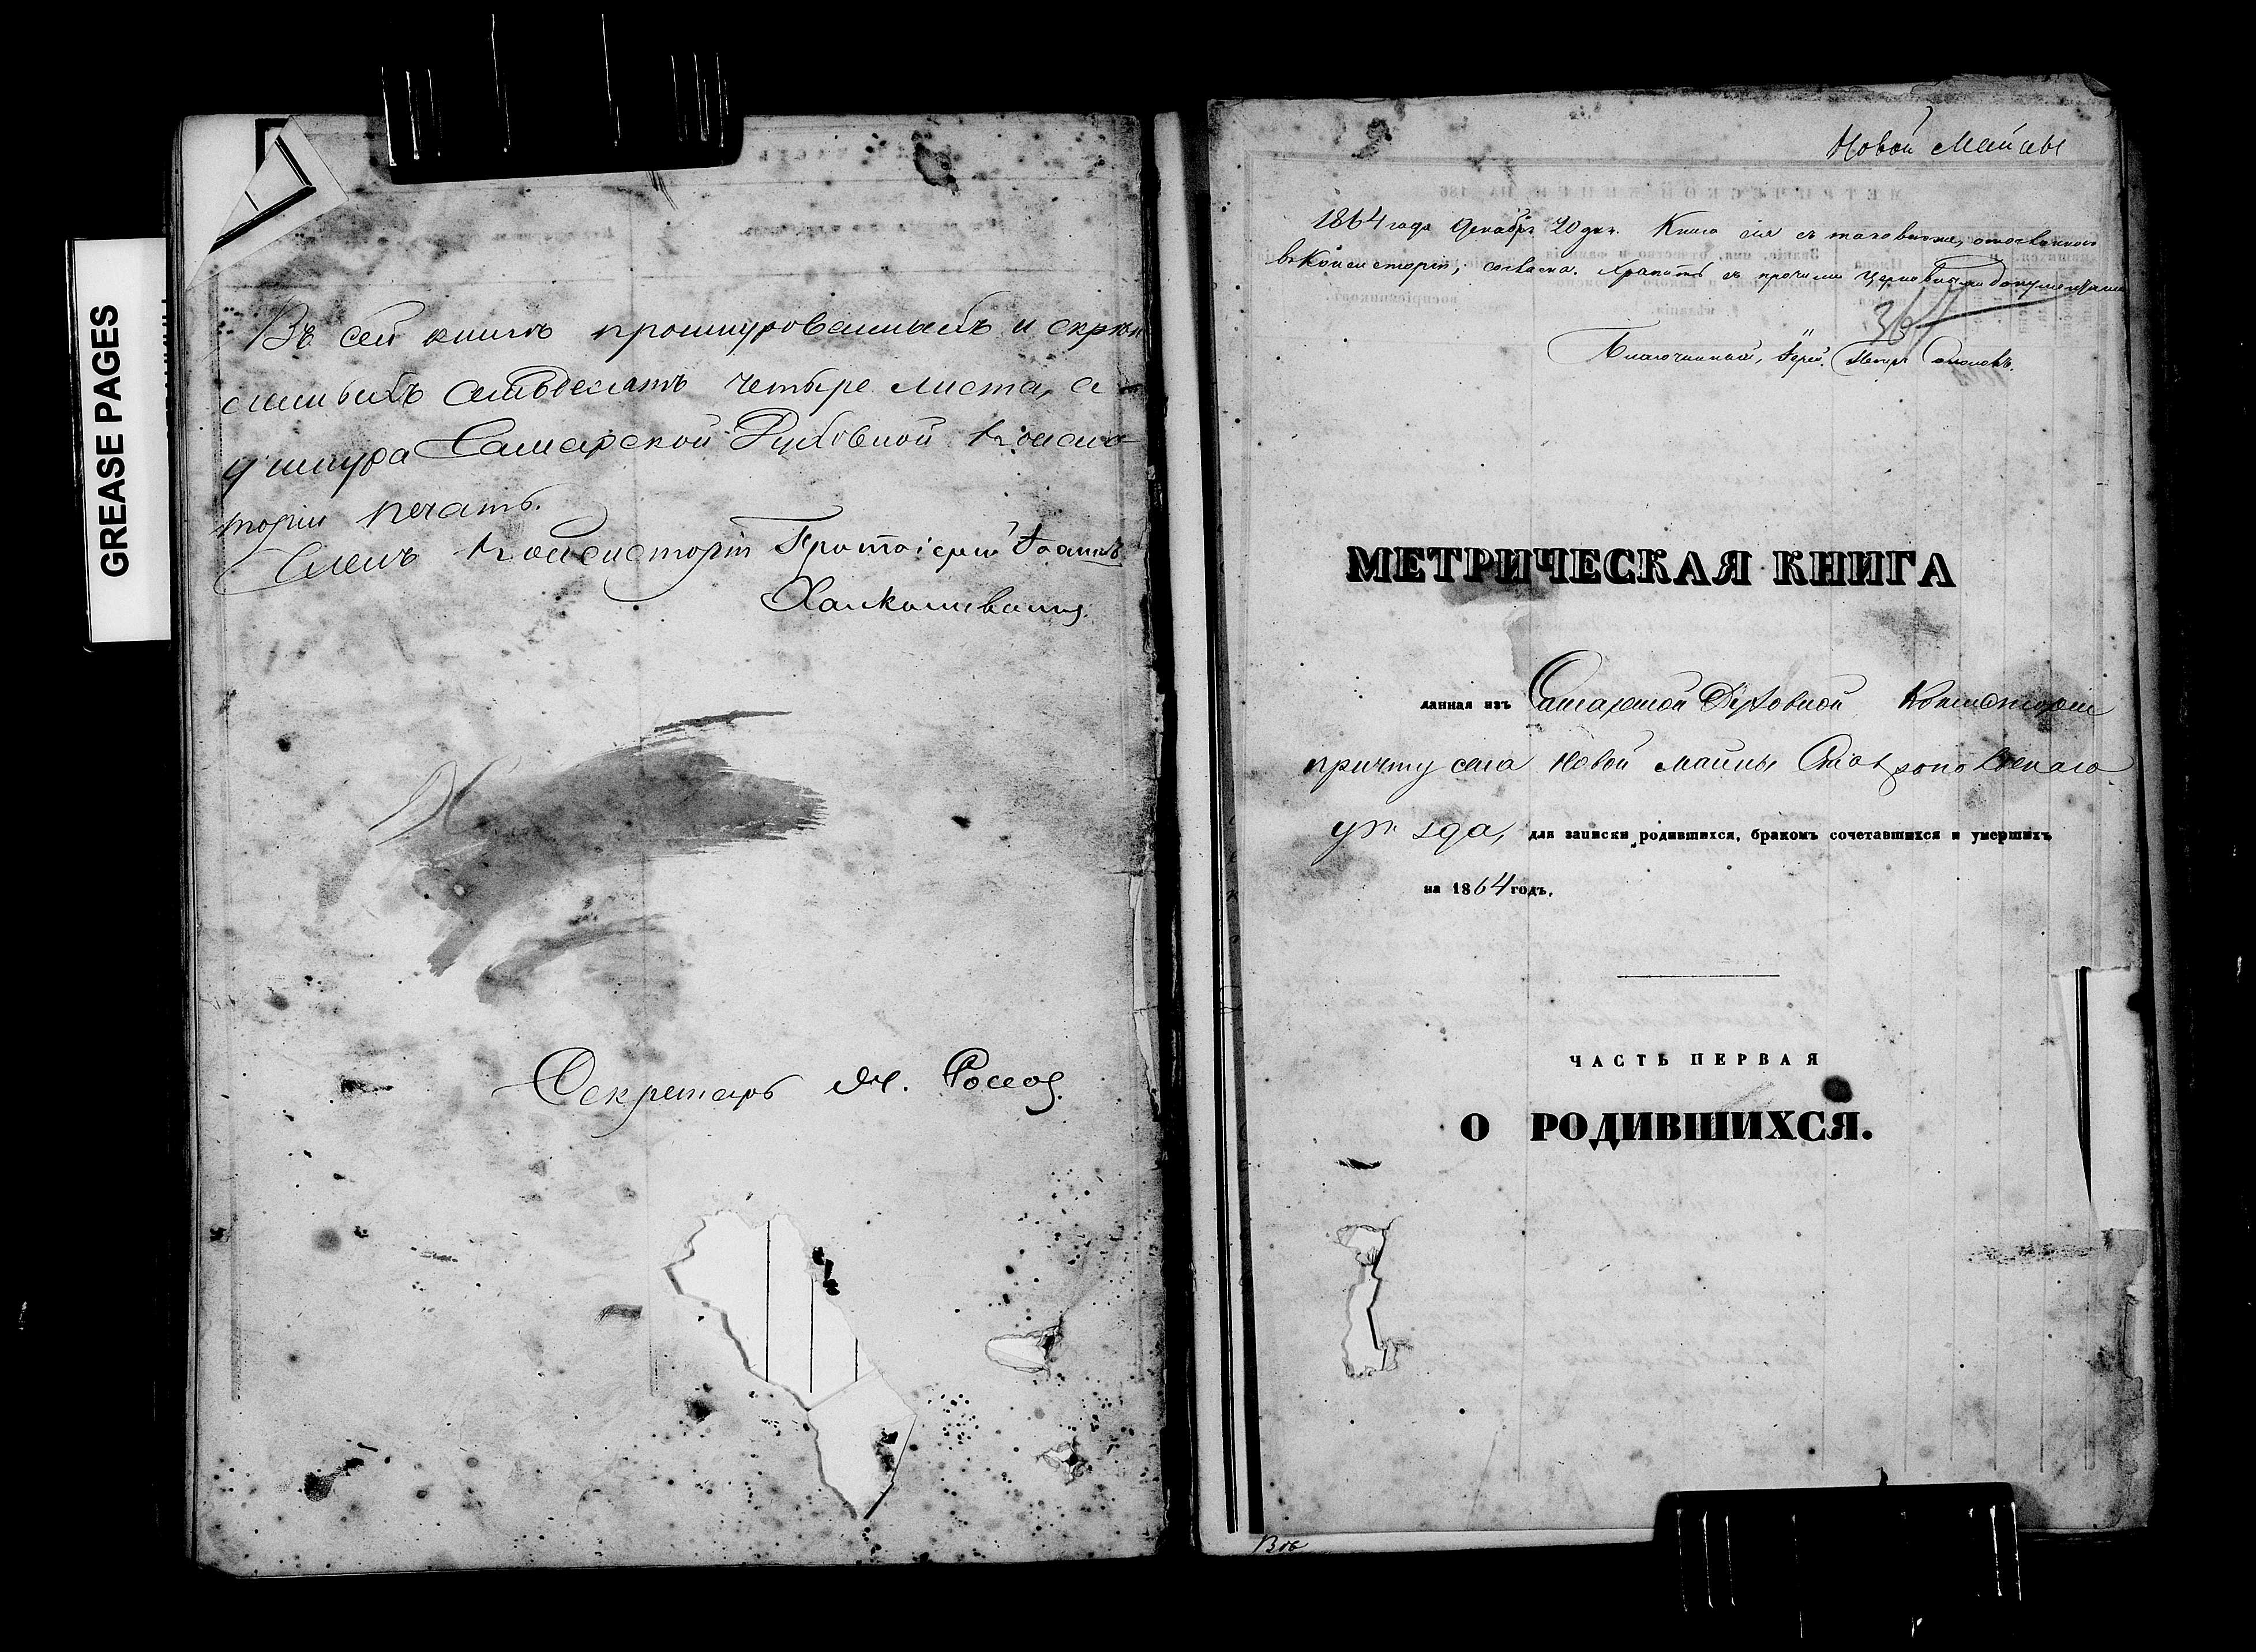 GREASE PAGES
Въ сей книгѣ прошнурованныхъ и скрѣп
ленныхъ семьдесятъ четыре листа, а
у шнура Самарской Духовной Консис-
торіи печать.
Членъ Консисторіи Протоіерей Іоаннъ
Халколивановъ.
Секретарь
Новой Майны
1864 года Декабря 20 дня. Книга сія съ таковою же,
въ Консисторію, согласна. Хранить съ прочими церковными документами
367
Благочинный, Іерей Петръ
МЕТРИЧЕСКАЯ КНИГА
данная изъ Самарской Духовной Консисторіи
причту села Новой Майны Ставропольскаго
уѣзда, для записки родившихся, бракомъ сочетавшихся и умершихъ
на 1864 годъ.
ЧАСТЬ ПЕРВАЯ
О РОДИВШИХСЯ.